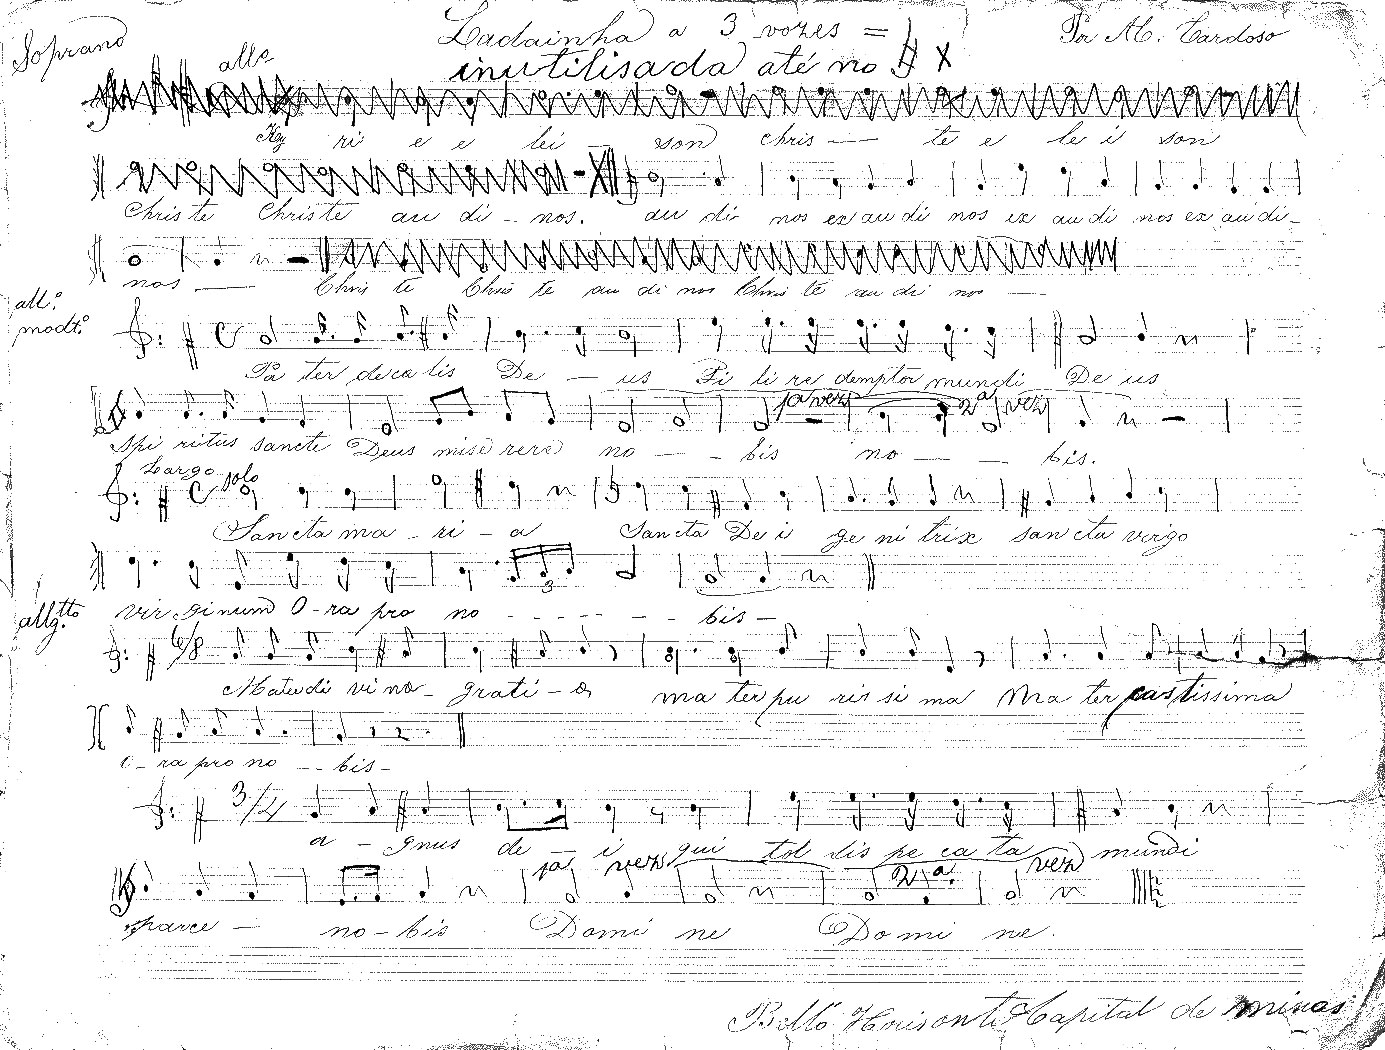 Soprano
Ladainha a 3 vozes =
Por M. Cardoso
inutilisada até no
allo
Ky ri e e lei son chris — te e le i son
Christe Christe au di - nos. au di nos ex au di nos ex au di nos ex au di -
nos — Chris te Chris te au di nos Chris te au di nos —
all.º modt.º
Pa ter de ce lis De — us Fi li re demptor mundi De us
1ª vez 2ª vez
Spi ritus sancte Deus mise rere no - - bis no — — bis.
Largo solo
Sancta ma - ri - a Sancta De i ge ni trix sancta virgo
3
vir ginum O - ra pro no - - - - - bis -
allg.tto
6/8
Mater di vina - grati - a ma ter pu ris si ma Ma ter castissima
O - ra pro no - - bis -
3/4
a - gnus de — i qui tol lis pe ca ta mundi
1ª vez 2ª vez
parce — no - bis Domi ne Do mi ne.
Bello Horisonte Capital de minas